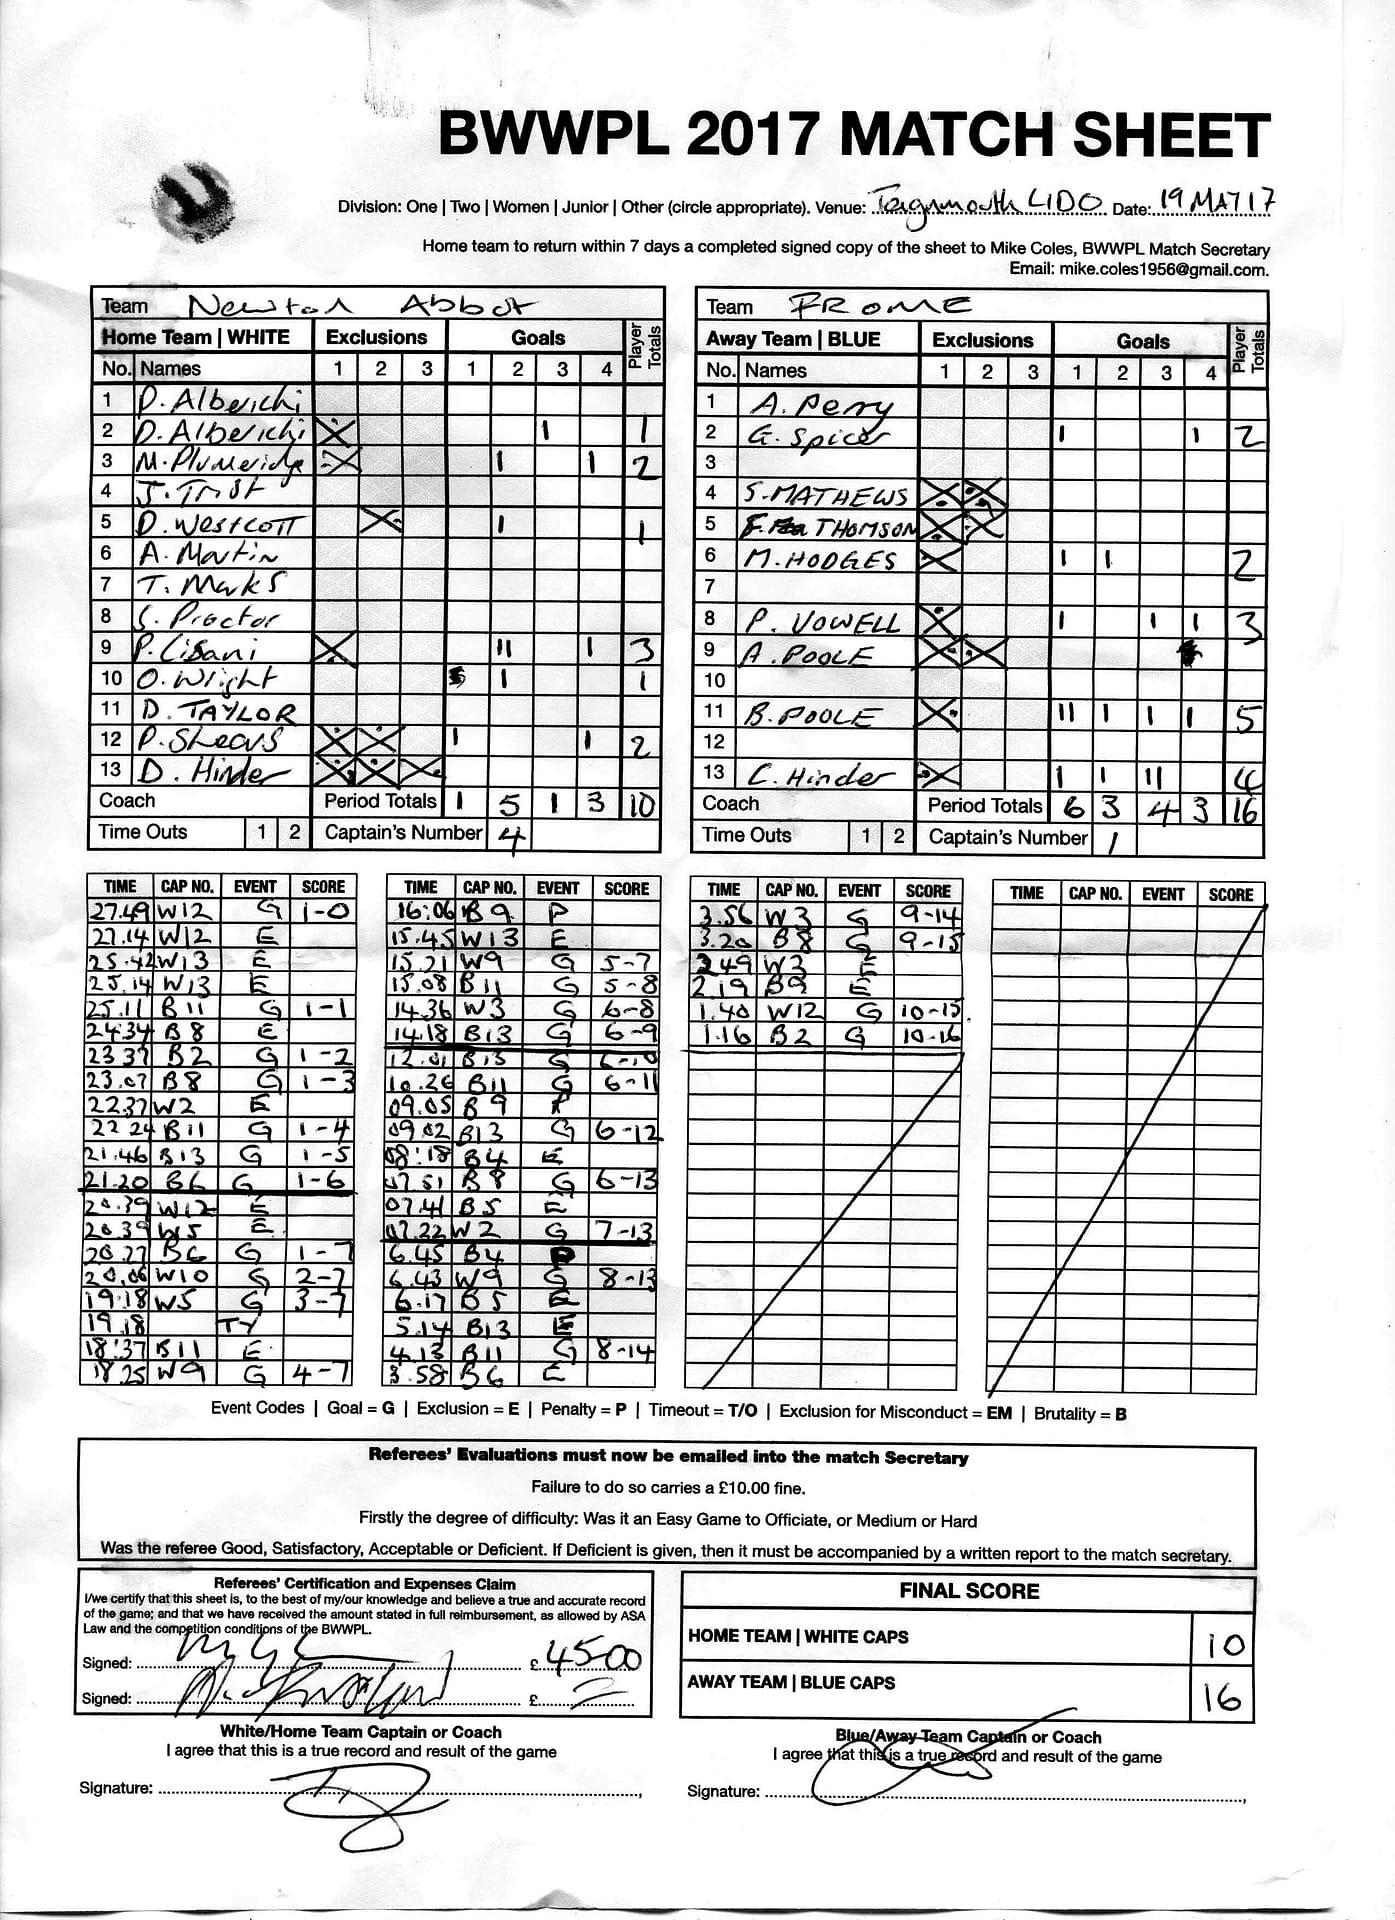 BWWPL 2017 MATCH SHEET
Division: One | Two | Women | Junior | Other (circle appropriate). Venue: Teignmouth LIDO Date: 19 MAY 17
Home team to return within 7 days a completed signed copy of the sheet to Mike Coles, BWWPL Match Secretary
Email: mike.coles1956@gmail.com.
Team Newton Abbot
Home Team | WHITE Exclusions Goals Player Totals
No. Names 1 2 3 1 2 3 4
1 D. Alberichi
2 D. Alberichi X 1 1
3 M. Plumeridge X 1 1 2
4 J. Trist
5 D. Westcott X 1 1
6 A. Martin
7 T. Marks
8 S. Proctor
9 P. Cisani X 11 1 3
10 O. Wright 1 1
11 D. TAYLOR
12 P. Shears X X 1 1 2
13 D. Hinder X X X
Coach Period Totals 1 5 1 3 10
Time Outs 1 2 Captain's Number 4
Team FROME
Away Team | BLUE Exclusions Goals Player Totals
No. Names 1 2 3 1 2 3 4
1 A. Perry
2 G. Spicer 1 1 2
3
4 S. MATHEWS X X
5 THOMSON X X
6 M. HODGES X 1 1 2
7
8 P. VOWELL X 1 1 1 3
9 A. POOLE X X
10
11 B. POOLE X 11 1 1 1 5
12
13 C. Hinder X 1 1 11 4
Coach Period Totals 6 3 4 3 16
Time Outs 1 2 Captain's Number 1
TIME CAP NO. EVENT SCORE
27.49 W12 G 1-0
27.14 W12 E
25.42 W13 E
25.14 W13 E
25.11 B11 G 1-1
24.34 B8 E
23.37 B2 G 1-2
23.07 B8 G 1-3
22.37 W2 E
22 24 B11 G 1-4
21.46 B13 G 1-5
21.20 B6 G 1-6
20.39 W12 E
20.39 W5 E
20.27 B6 G 1-7
20.06 W10 G 2-7
19:18 W5 G 3-7
19.18 TY
18:37 B11 E
18.25 W9 G 4-7
TIME CAP NO. EVENT SCORE
16:06 B9 P
15.45 W13 E
15.21 W9 G 5-7
15.08 B11 G 5-8
14.36 W3 G 6-8
14.18 B13 G 6-9
12.01 B13 G 6-10
10.26 B11 G 6-11
09.05 B9 P
09.02 B13 G 6-12
08:18 B4 E
07.51 B8 G 6-13
07.41 B5 E
07.22 W2 G 7-13
6.45 B4 P
6.43 W9 G 8-13
6.17 B5 E
5.14 B13 E
4.13 B11 G 8-14
3.58 B6 E
TIME CAP NO. EVENT SCORE
3.56 W3 G 9-14
3.20 B8 G 9-15
2.49 W3 E
2.19 B9 E
1.40 W12 G 10-15.
1.16 B2 G 10-16
TIME CAP NO. EVENT SCORE
Event Codes | Goal = G | Exclusion = E | Penalty = P | Timeout = T/O | Exclusion for Misconduct = EM | Brutality = B
Referees' Evaluations must now be emailed into the match Secretary
Failure to do so carries a £10.00 fine.
Firstly the degree of difficulty: Was it an Easy Game to Officiate, or Medium or Hard
Was the referee Good, Satisfactory, Acceptable or Deficient. If Deficient is given, then it must be accompanied by a written report to the match secretary.
Referees' Certification and Expenses Claim
I/we certify that this sheet is, to the best of my/our knowledge and believe a true and accurate record
of the game; and that we have received the amount stated in full reimbursement, as allowed by ASA
Law and the competition conditions of the BWWPL.
Signed: £ 45-00
Signed: £
FINAL SCORE
HOME TEAM | WHITE CAPS 10
AWAY TEAM | BLUE CAPS 16
White/Home Team Captain or Coach
I agree that this is a true record and result of the game
Signature:
Blue/Away Team Captain or Coach
I agree that this is a true record and result of the game
Signature: